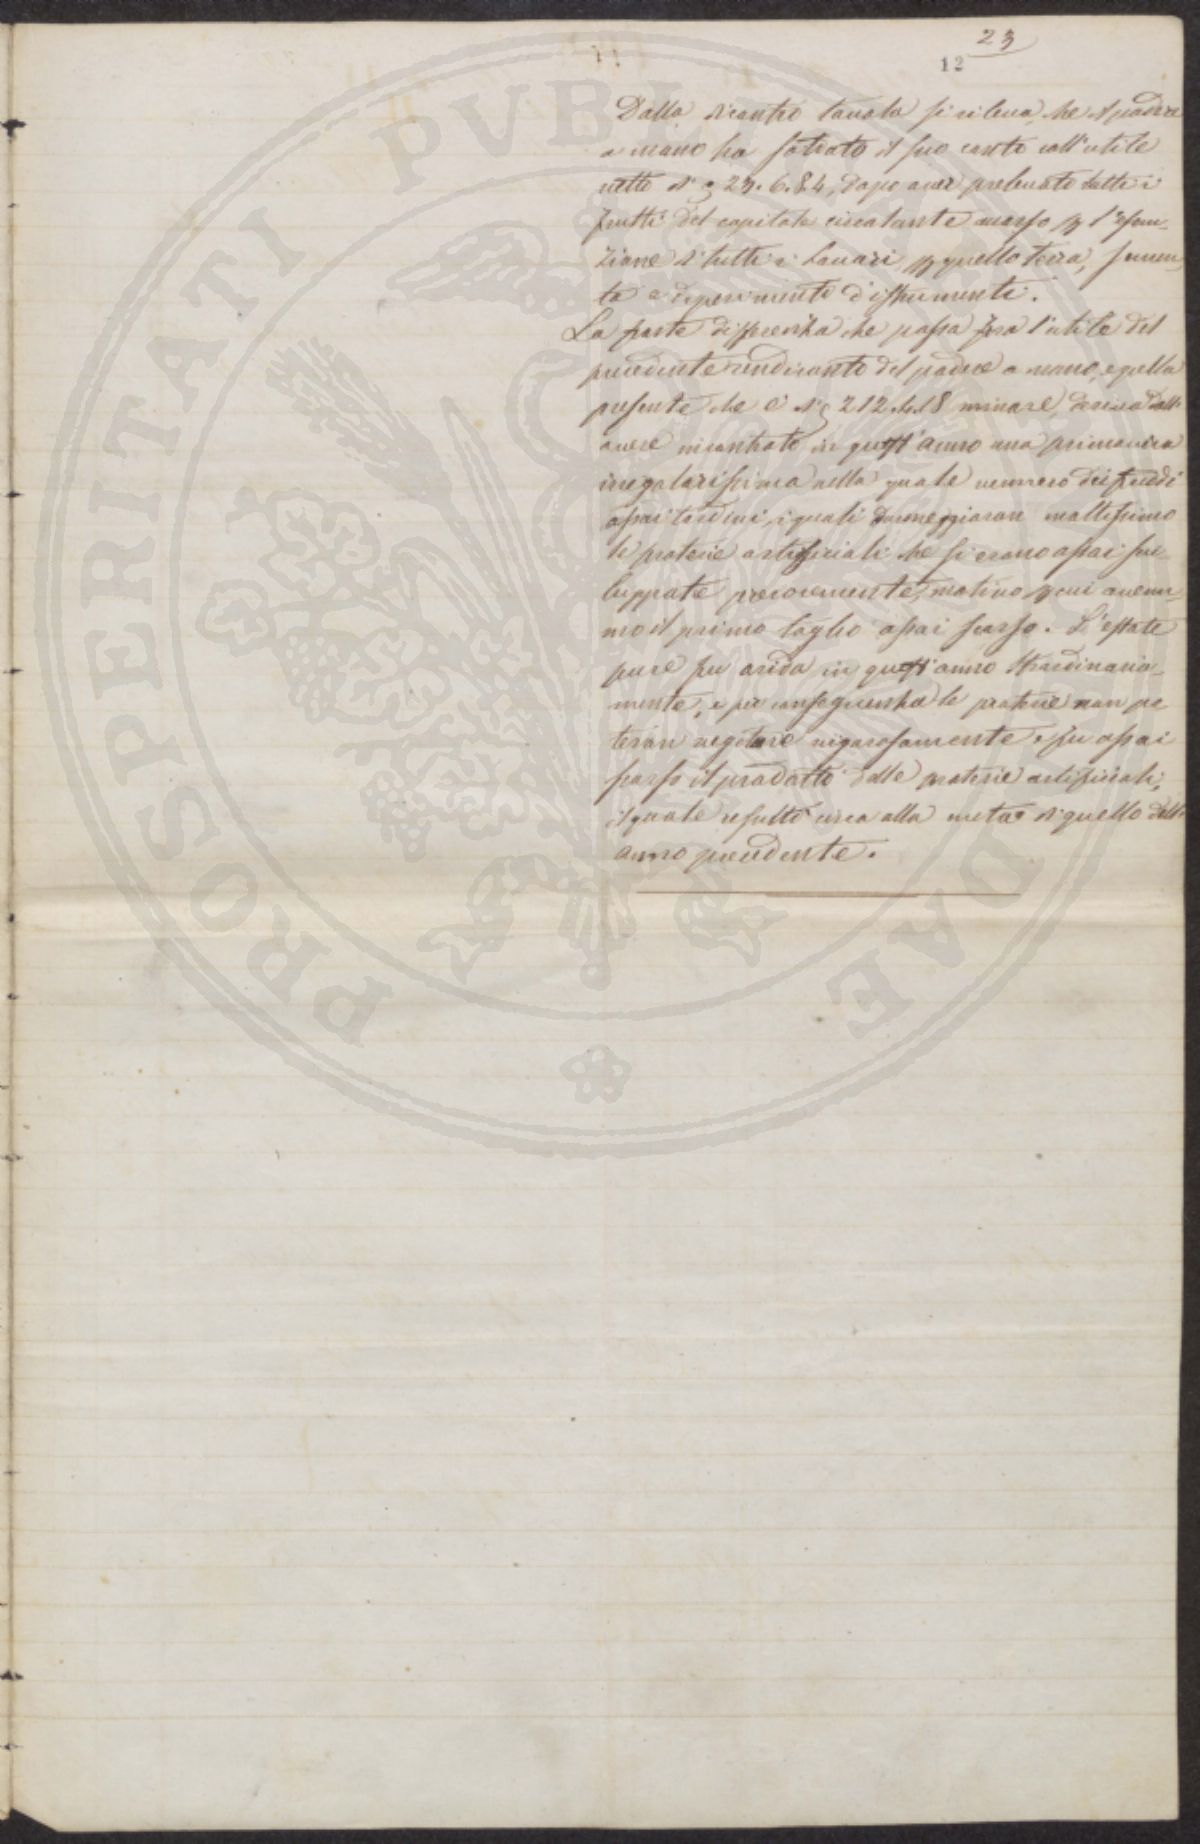 23
12
Dalla dicontro tavola si rileva che il podere
a mano ha saldato il suo conto coll'utile
netto di £ 23.6.84, dopo aver prelevato tutti i
frutti del capitale circolante occorso p l'esecu-
zione di tutti i lavori, p quello terra, semen-
te e deperimento d'istrumenti.
La forte differenza che passa fra l'utile del
precedente rendiconto del podere a mano, e quella
presente che è di £ 212. 18 minore, deriva dall'
avere incontrato in quest'anno una primavera
iregolarissima nella quale vennero dei freddi
assai tardivi, i quali daneggiaron moltissimo
le praterie artificiali che si erano assai svi
luppate precocemente, motivo p cui avemmo
mo il primo taglio assai scarso. L'estate
pure fu arida in quest'anno strardinaria-
mente, e per conseguenza le praterie non po
teron vegetare vigorosamente e fu assai
scarso il prodotto delle praterie artificiali,
il quale resultò circa alla metà di quello dell'
anno precedente.
PROSPERITATI PVBLICAE